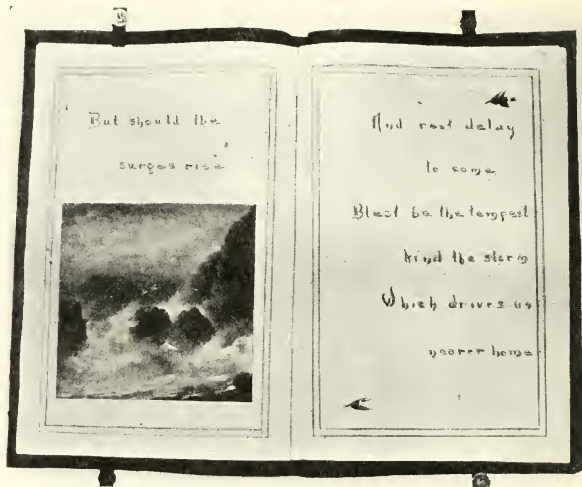 But should the
surges rise
And rest delay
to come
Blest be the tempest
kind the storm
Which drives us
nearer home